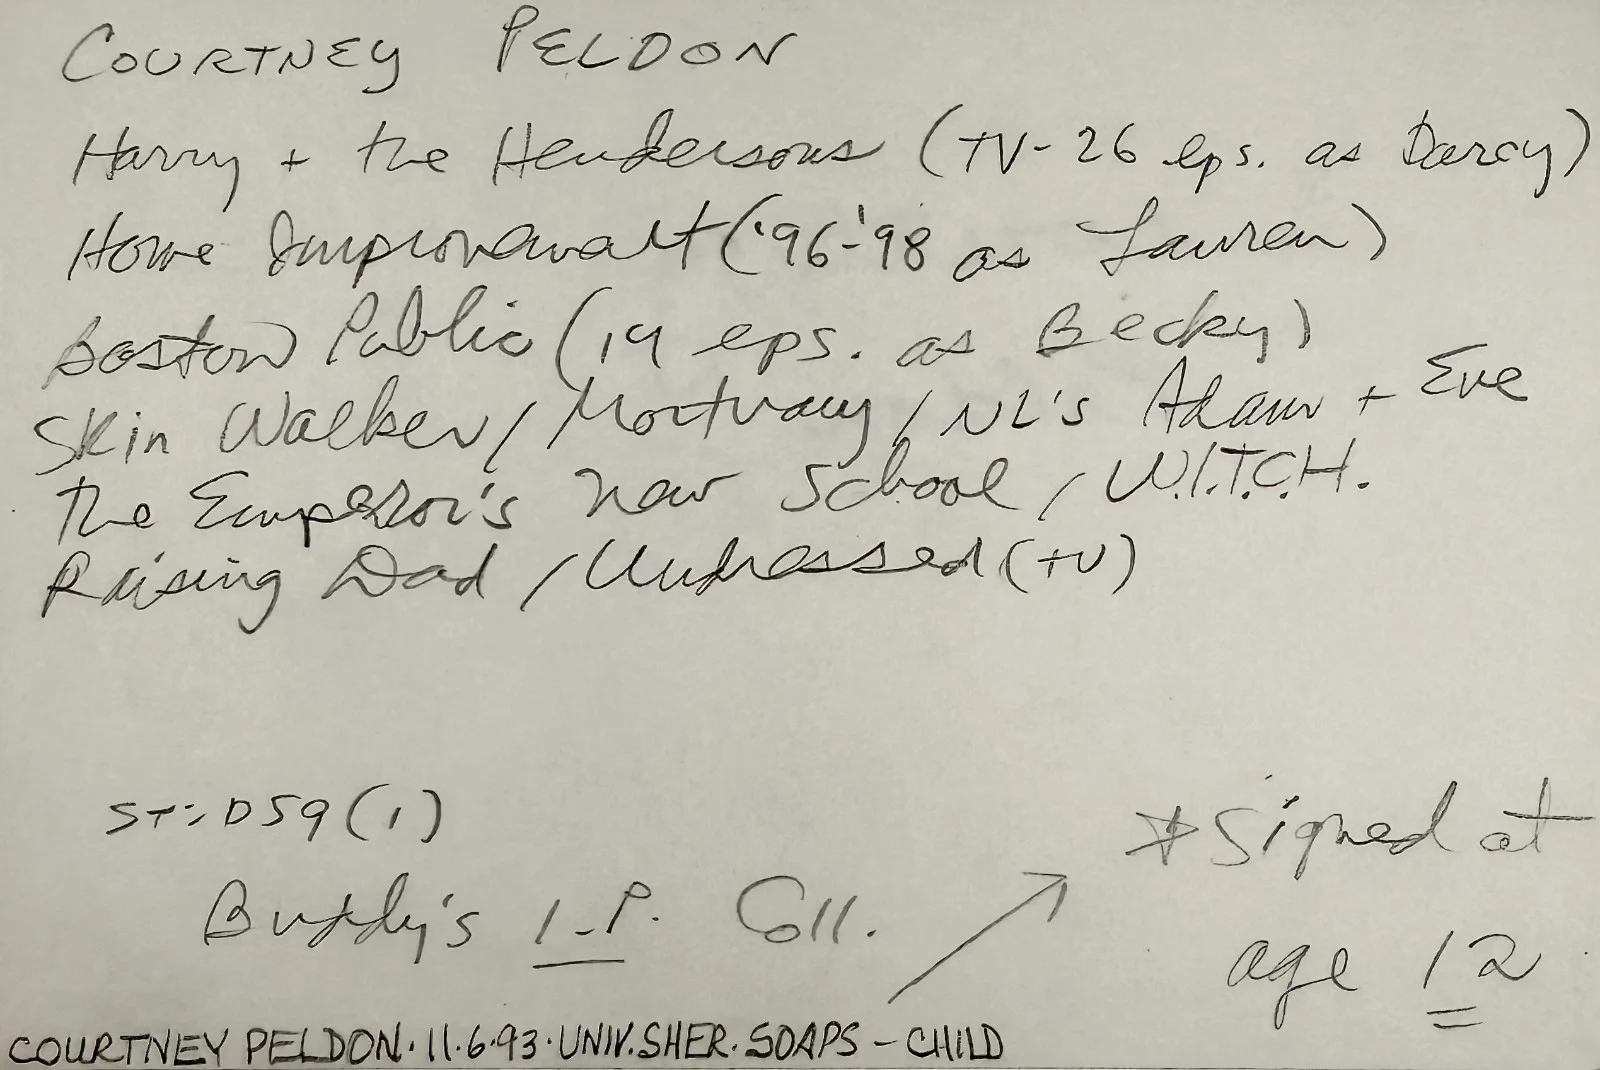 COURTNEY PELDON
Harry + the Hendersons (TV-26 eps. as Darcy)
Home Improvement ('96-'98 as Lauren)
Boston Public (19 eps. as Becky)
Skin Walker / Mortuary / NL's Adam + Eve
The Emperor's New School / W.I.T.C.H.
Raising Dad / Undressed (TV)
ST: DS9 (1)
* Signed at
Buddy's I.P. Coll.
age 12
COURTNEY PELDON · 11·6·93 · UNIV. SHER. SOAPS - CHILD